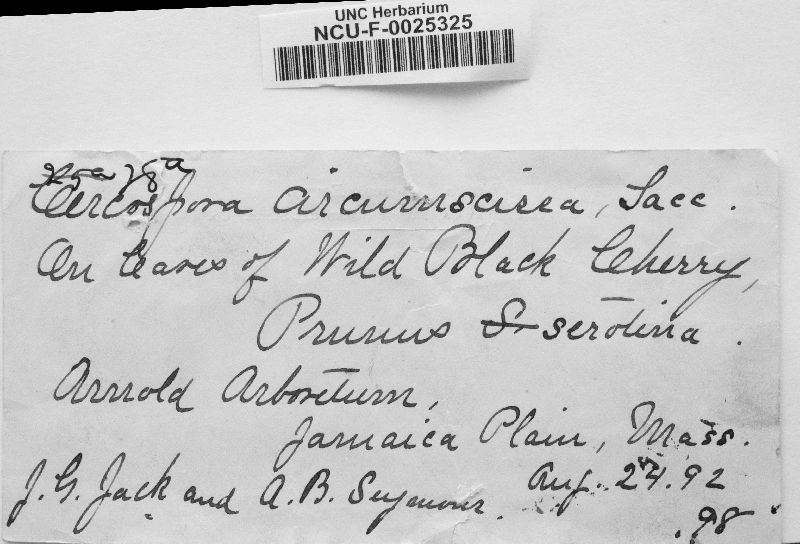 UNC Herbarium
NCU-F-0025325
28a
Cercospora circumscissa, Sacc.
On leaves of Wild Black Cherry,
Prunus serotina.
Arnold Arboretum,
Jamaica Plain, Mass.
J. G. Jack and A. B. Seymour. Aug. 24. 92
.98